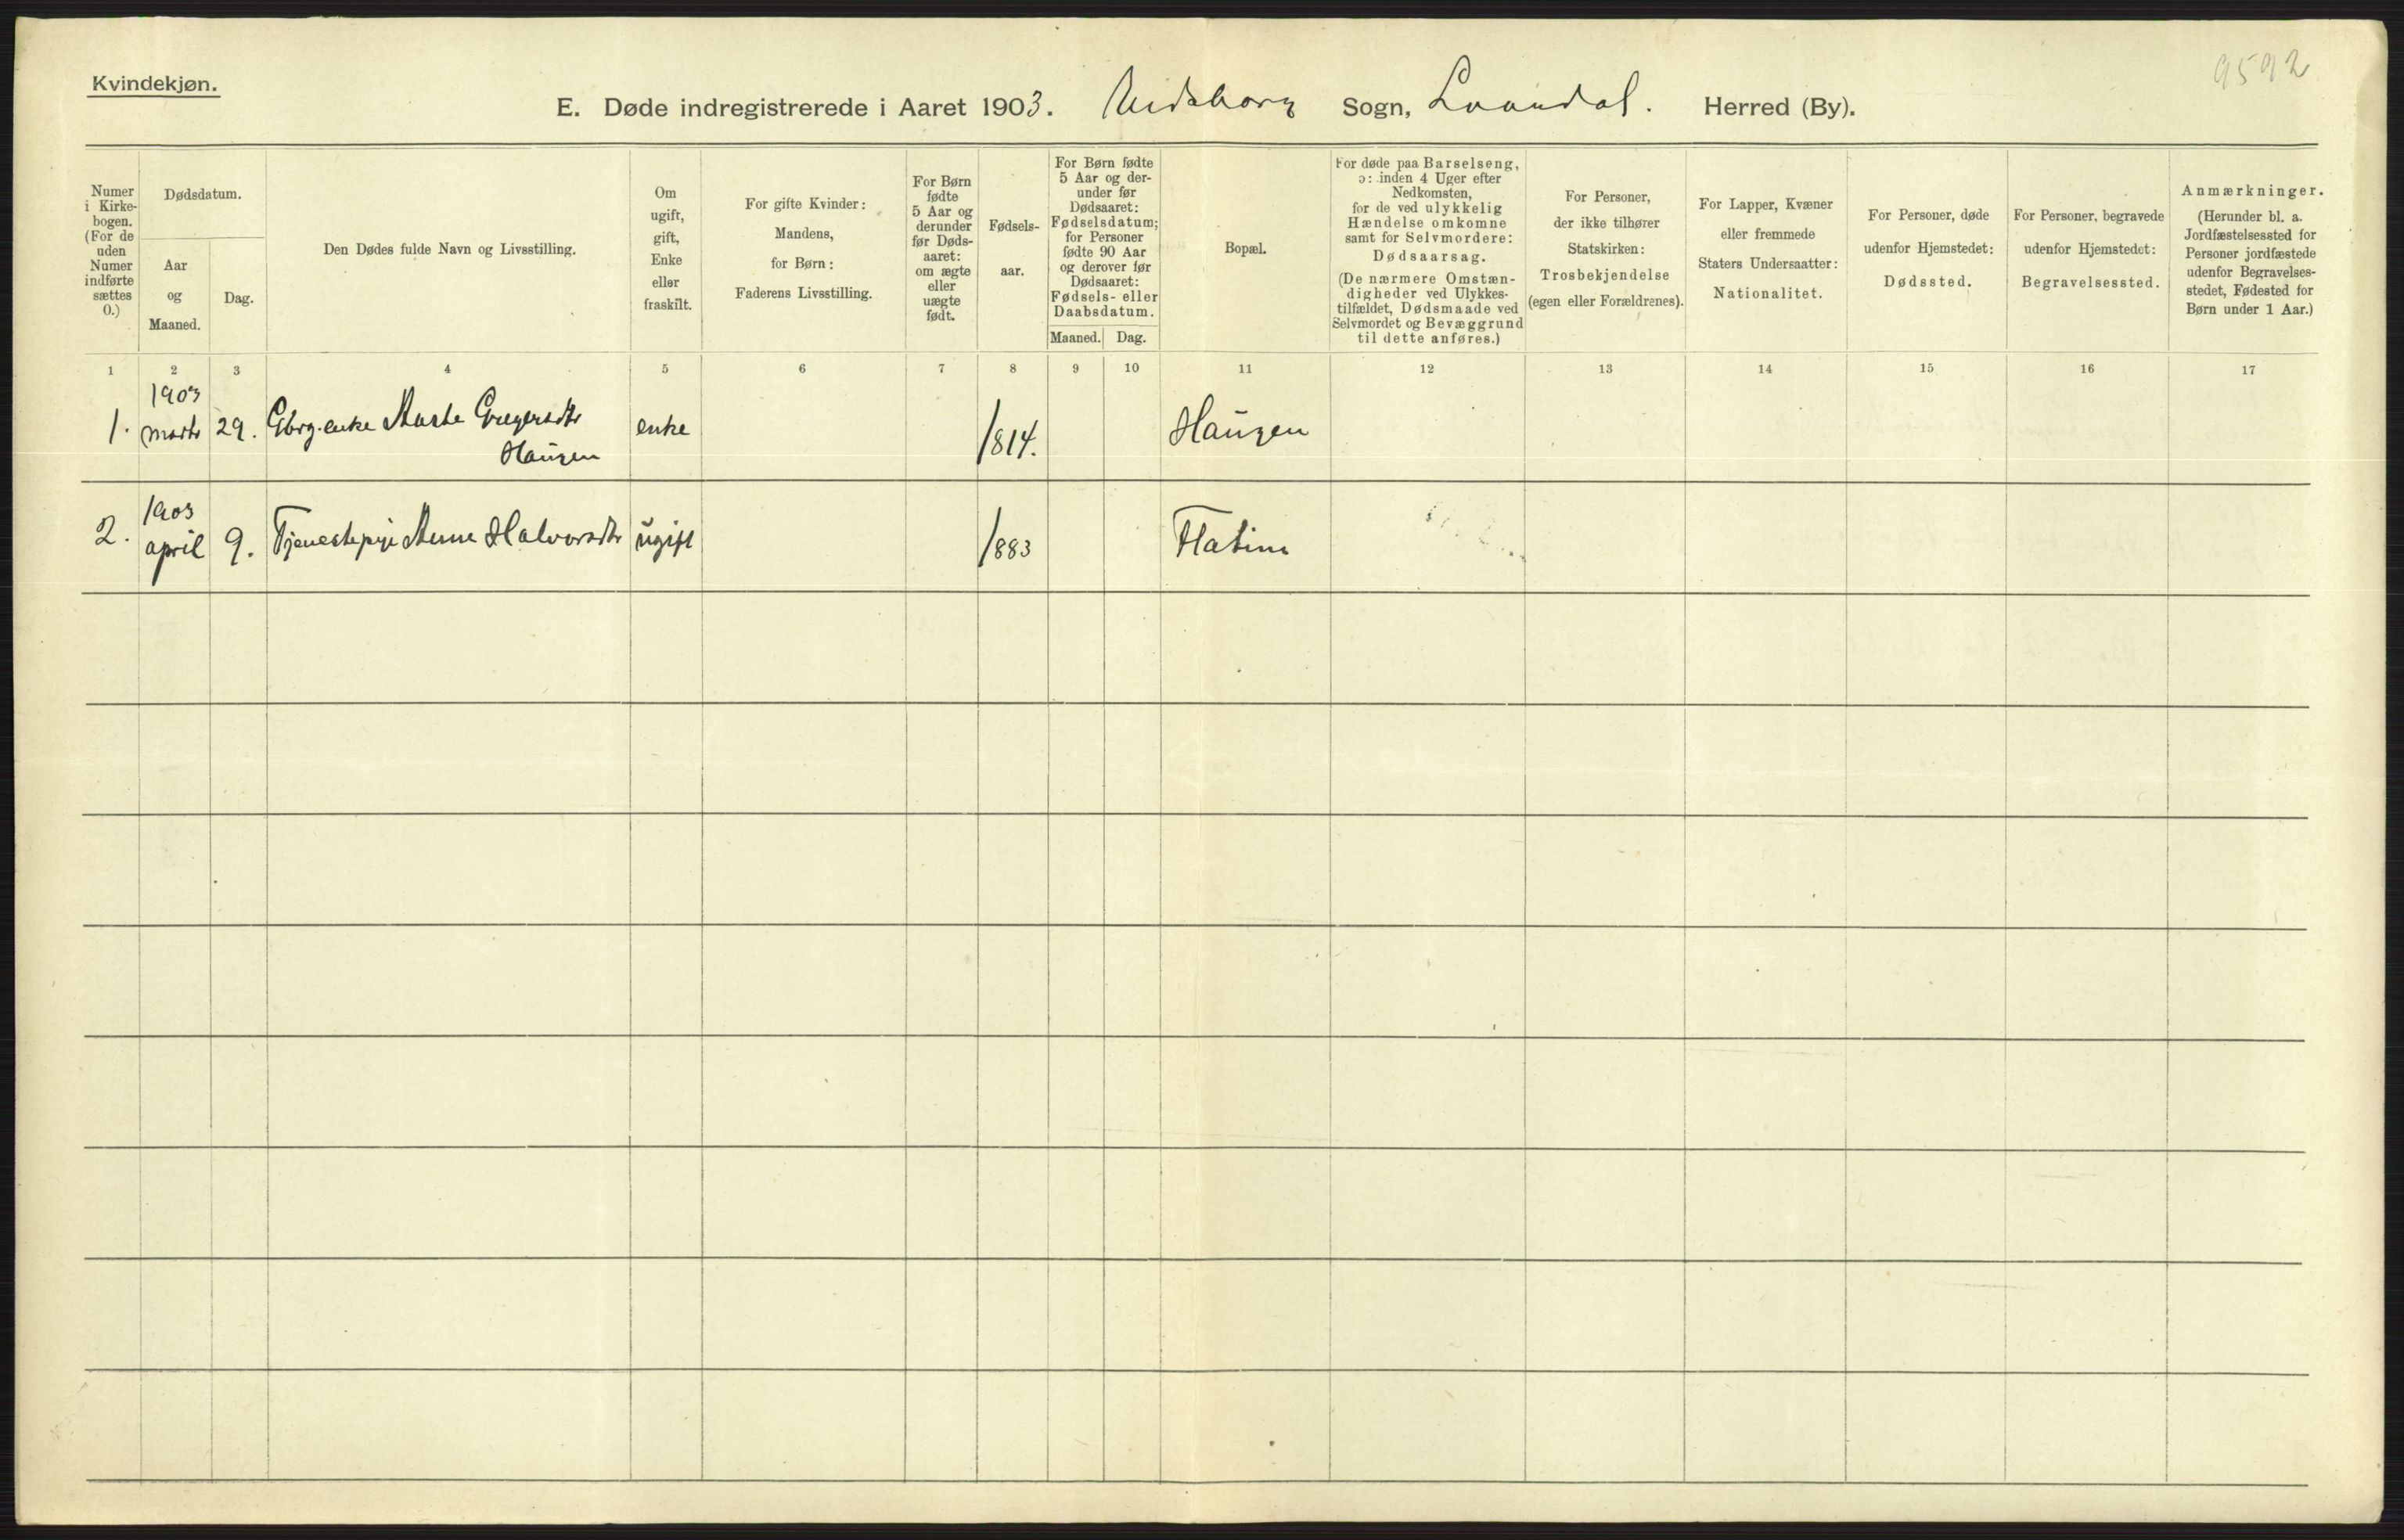 9592
Kvindekjøn.
E. Døde indregistrerede i Aaret 1903. Eidsborg Sogn, Laurdal. Herred (By).
Numer
i Kirke-
bogen.
(For de
uden
Numer
indførte
sættes
0.)
Dødsdatum.
Aar
og
Maaned.
Dag.
Den Dødes fulde Navn og Livsstilling.
Om
ugift,
gift,
Enke
eller
fraskilt.
For gifte Kvinder:
Mandens,
for Børn:
Faderens Livsstilling.
For Børn
fødte
5 Aar og
derunder
før Døds-
aaret:
om ægte
eller
uægte
født.
Fødsels-
aar.
For Børn fødte
5 Aar og der-
under før
Dødsaaret:
Fødselsdatum;
for Personer
fødte 90 Aar
og derover før
Dødsaaret:
Fødsels- eller
Daabsdatum.
Maaned. Dag.
Bopæl.
For døde paa Barselseng,
ɔ: inden 4 Uger efter
Nedkomsten,
for de ved ulykkelig
Hændelse omkomne
samt for Selvmordere:
Dødsaarsag.
(De nærmere Omstæn-
digheder ved Ulykkes-
tilfældet, Dødsmaade ved
Selvmordet og Bevæggrund
til dette anføres.)
For Personer,
der ikke tilhører
Statskirken:
Trosbekjendelse
(egen eller Forældrenes).
For Lapper, Kvæner
eller fremmede
Staters Undersaatter:
Nationalitet.
For Personer, døde
udenfor Hjemstedet:
Dødssted.
For Personer, begravede
udenfor Hjemstedet:
Begravelsessted.
Anmærkninger.
(Herunder bl. a.
Jordfæstelsessted for
Personer jordfæstede
udenfor Begravelses-
stedet, Fødested for
Børn under 1 Aar.)
1 2 3 4 5 6 7 8 9 10 11 12 13 14 15 16 17
1903
1. marts 29. Gbrg.enke Aaste Gregersdtr enke 1814. Haugen
Haugen
1903
2. april 9. Tjenestepige Anne Halvorsdtr ugift 1883